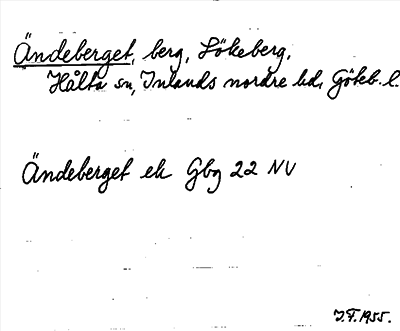 Ändeberget, berg, Lökeberg,
Hålta sn, Inlands nordre hd, Göteb. l.
Ändeberget ek Gbg 22 NV
J.F. 1955.